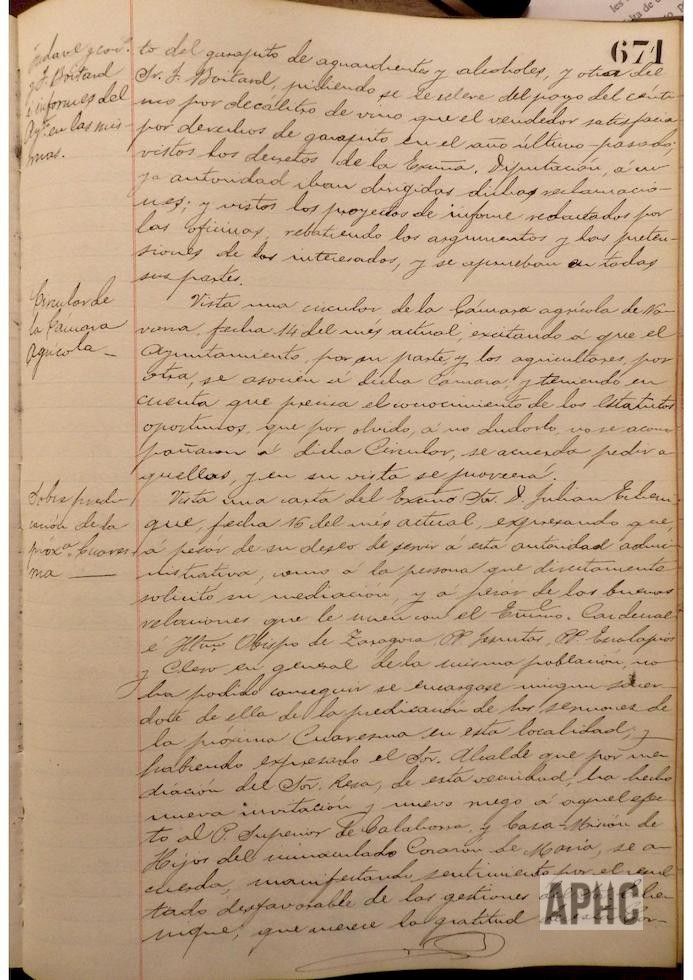 671
y J. Boitard
é informes del
Aytº en las mis-
mas.
to del garapito de aguardientes y alcoholes, y otra del
Sr. J. Boitard, pidiendo se le releve del pago del cénti-
mo por decálitro de vino que el vendedor satisfacía
por derechos de garapito en el año último pasado;
vistos los decretos de la Excma. Diputación, á cu-
ya autoridad iban dirigidas dichas reclamacio-
nes; y vistos los proyectos de informe redactados por
las oficinas, rebatiendo los argumentos y las preten-
siones de los interesados, y se aprueban en todas
sus partes.
Circular de
la Cámara
Agrícola—
Vista una circular de la Cámara agrícola de Na-
varra, fecha 14 del mes actual, excitando á que el
Ayuntamiento, por su parte, y los agricultores, por
otra, se asocien á dicha Cámara, y teniendo en
cuenta que precisa el conocimiento de los Estatutos
oportunos, que por olvido, á no dudarlo, no se acom
pañaron á dicha Circular, se acuerda pedir a-
quellos, y en su vista se proveerá.
Sobre predi-
cación de la
próxª Cuares-
ma —
Vista una carta del Excmo. Sr. D. Julian
que, fecha 16 del mes actual, expresando que,
á pesar de su deseo de servir á esta autoridad admi-
nistrativa, como á la persona que directamente
solicitó su mediación, y á pesar de las buenas
relaciones que le unen con el Emmo. Cardenal
é Iltmo. Obispo de Zaragoza, PP. Jesuitas, PP. Escolapios
y Clero en general de la misma población, no
ha podido conseguir se encargase ningun sacer-
dote de ella de la predicación de los sermones de
la próxima Cuaresma en esta localidad; y
habiendo expresado el Sr. Alcalde que por me-
diación del Sor. Resa, de esta vecindad, ha hecho
nueva invitación y nuevo ruego á aquel efec-
to al P. Superior de Calahorra y Casa-Misión de
Hijos del inmaculado Corazón de María, se a-
cuerda, manifestando sentimiento por el resul-
tado desfavorable de las gestiones
nique, que merece la gratitud
APHC